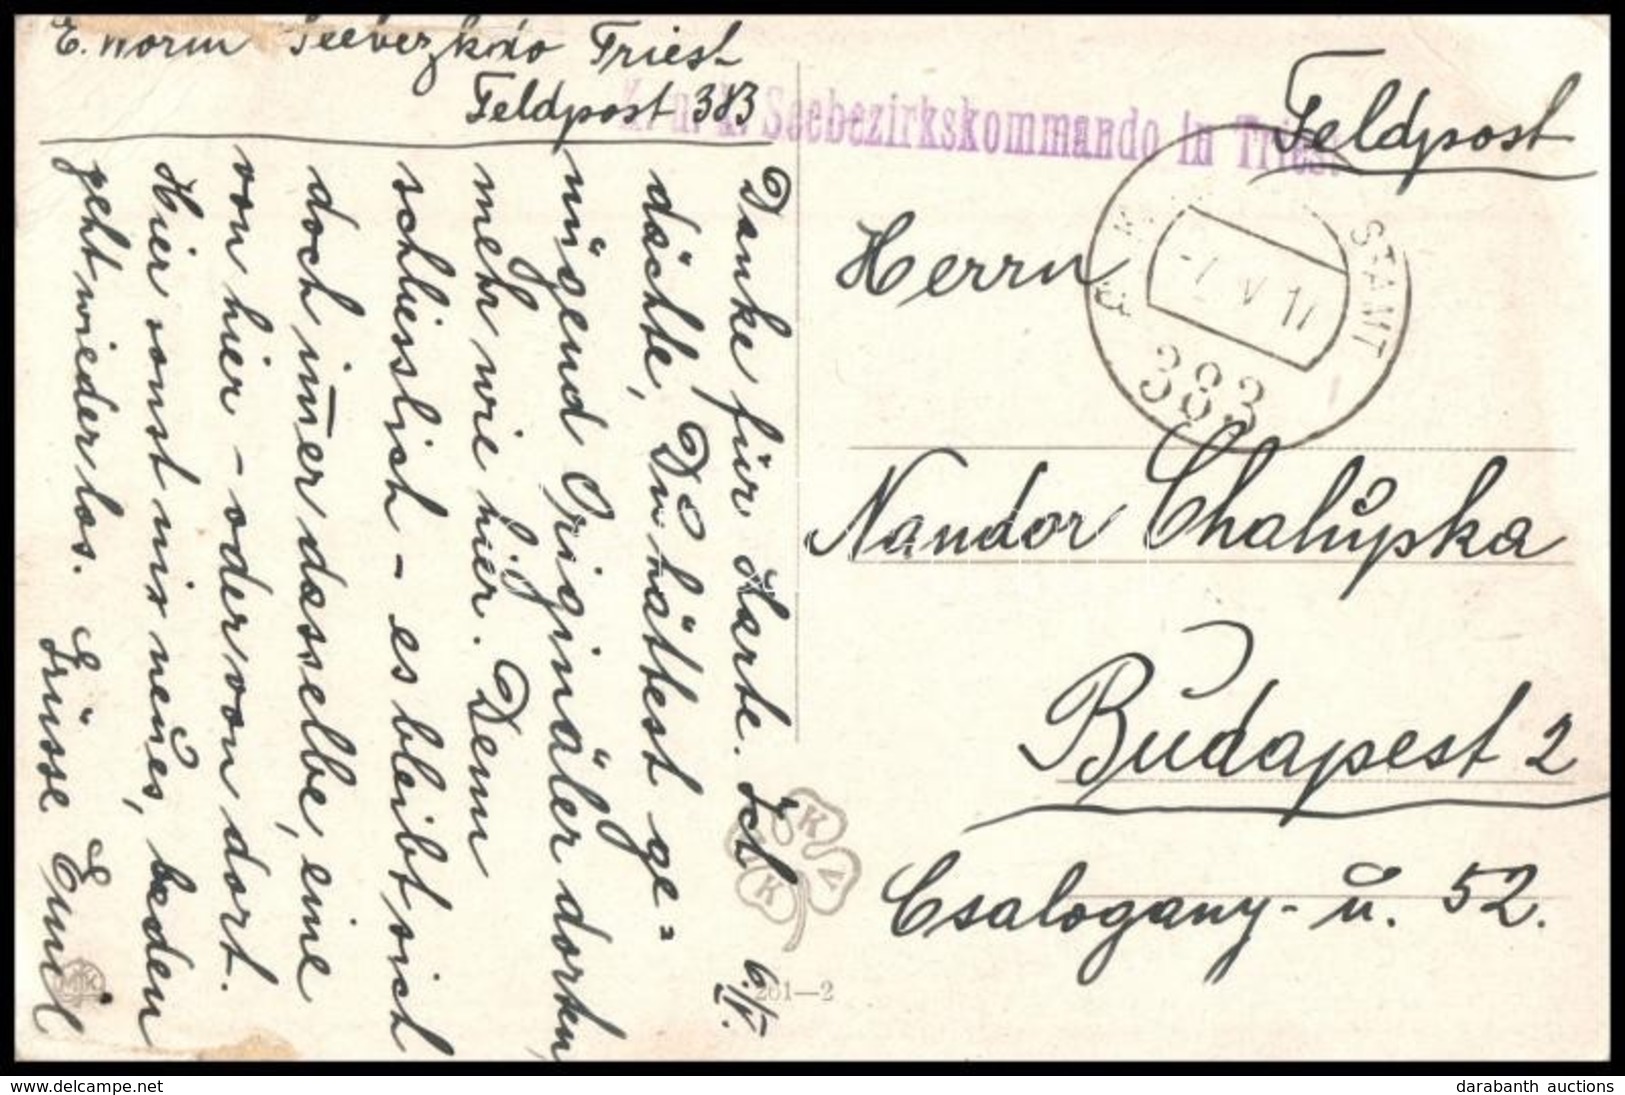 E. Worm Seebezkdo Triest
Feldpost 383
K. u. k. Seebezirkskommando in Triest.
Feldpost
STAMT
383
Herrn
Nandor Chalupka
Budapest 2
Csalogany - u. 52.
6./V.
Danke für Karte. Ich
dächte, Du hättest ge=
nügend Originäler dorten,
mehr wie hier. Denn
schliesslich - es bleibt sich
doch im̅er dasselbe, eine
von hier - oder von dort.
Hier sonst nix neues,
geht wieder los. Grüsse Emil
KKOKV
201—2
MJK
www.delcampe.net
darabanth auctions